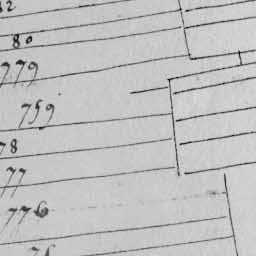 12
80
779
759
78
77
776